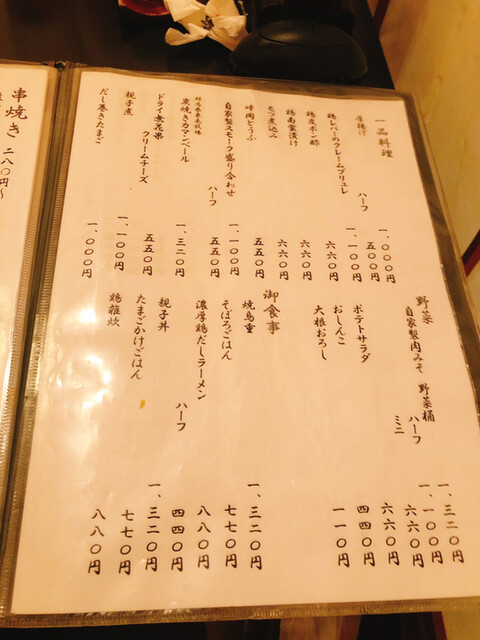 一品料理
厚揚げ 一、〇〇〇円
ハーフ 五〇〇円
鶏レバーのクレームブリュレ 一、一〇〇円
鶏皮ポン酢 六六〇円
鶏南蛮漬け 六六〇円
モツ煮込み 六六〇円
峰岡とうふ 五五〇円
自家製スモーク盛り合わせ 一、一〇〇円
ハーフ 五五〇円
炭焼きカマンベール 一、三二〇円
ドライ無花果
クリームチーズ 五五〇円
親子煮 一、一〇〇円
だし巻きたまご 一、〇〇〇円
野菜
自家製肉みそ 野菜桶 一、三二〇円
ハーフ 一、一〇〇円
ミニ 六六〇円
ポテトサラダ 六六〇円
おしんこ 四四〇円
大根おろし 一一〇円
御食事
焼鳥重 一、三二〇円
そぼろごはん 七七〇円
濃厚鶏だしラーメン 八八〇円
ハーフ 四四〇円
親子丼 一、三二〇円
たまごかけごはん 七七〇円
鶏雑炊 八八〇円
串焼き 二八〇円〜